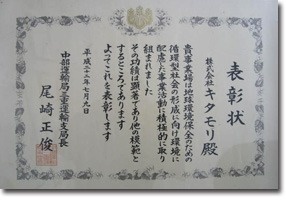 表彰状
株式会社キタモリ殿
貴事業場は地球環境保全のための
循環型社会の形成に向け環境に
配慮した事業活動に積極的に取り
組まれました
その功績は顕著であり他の模範と
するところであります
よってこれを表彰します
平成二十六年七月九日
中部運輸局三重運輸支局長
尾崎正俊